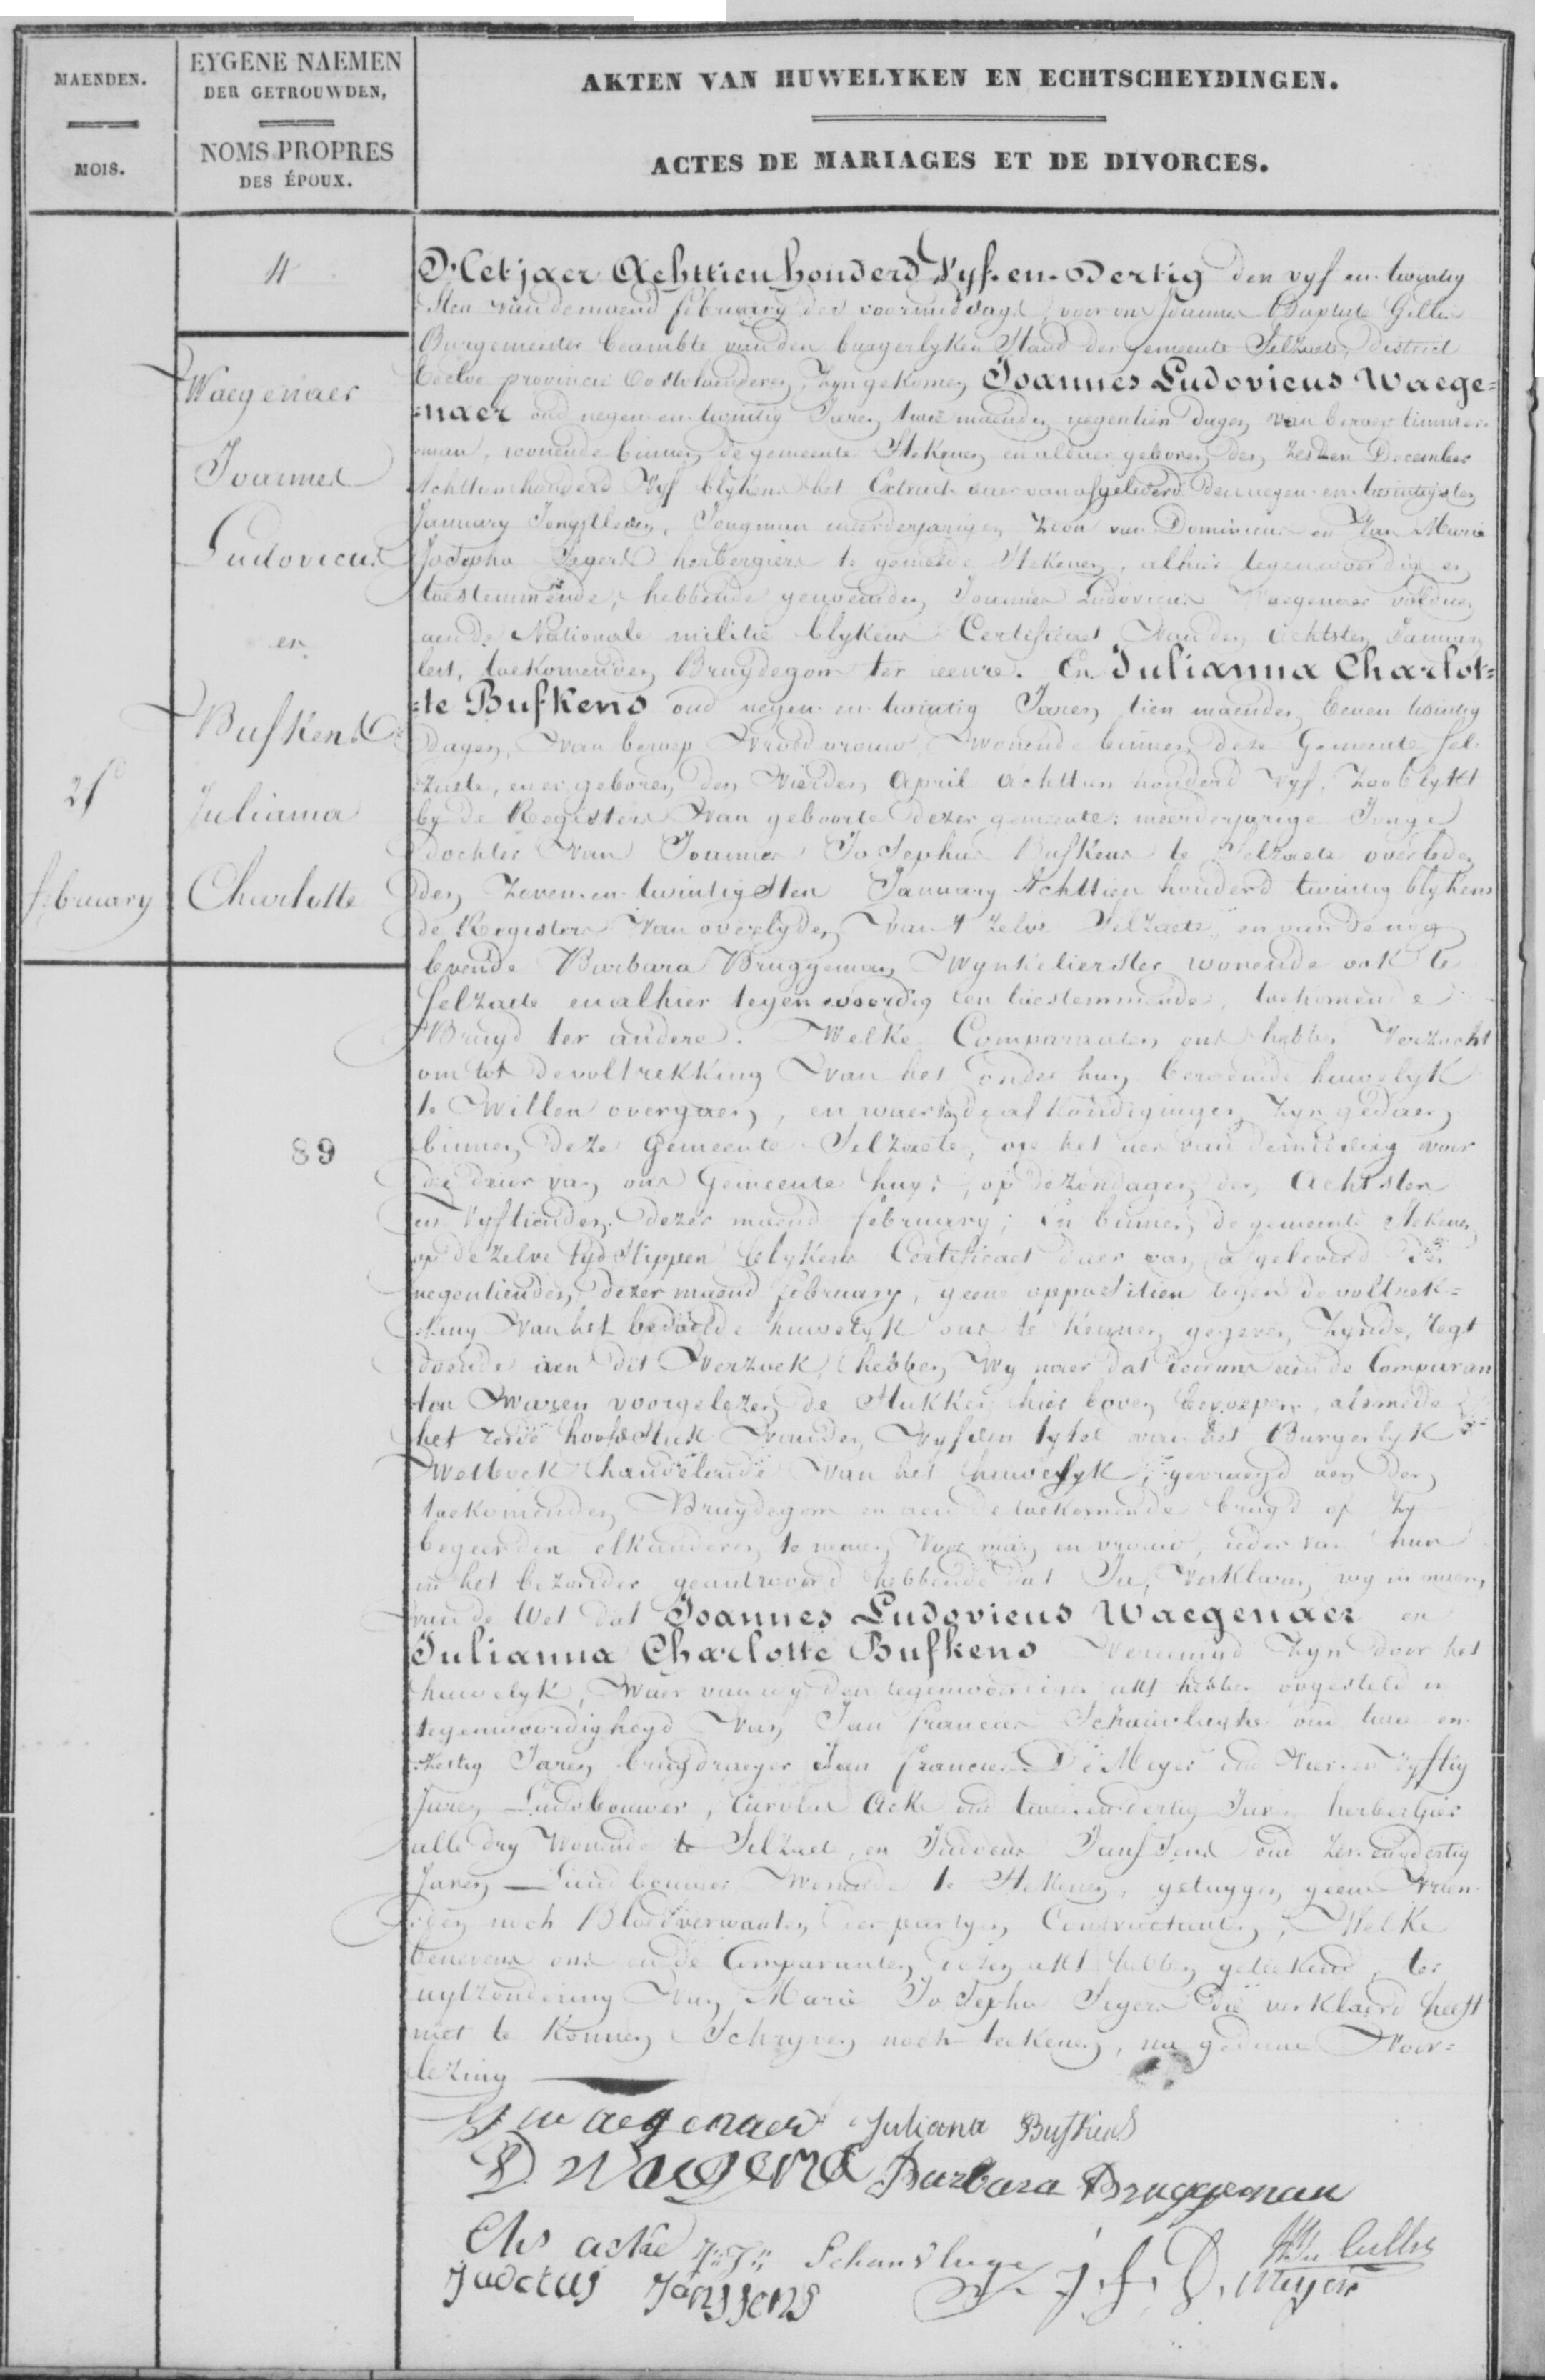 MAENDEN.
MOIS.
EYGENE NAEMEN
DER GETROUWDEN,
NOMS PROPRES
DES ÉPOUX.
AKTEN VAN HUWELYKEN EN ECHTSCHEYDINGEN.
ACTES DE MARIAGES ET DE DIVORCES.
4
Waegenaer
Joannes
Ludovicus
en
Bufkens
Julianna
Charlotte
25
february
89
Het jaer Achttien honderd Vyf-en-Dertig den vyf en twintig
sten van de maend february des voormiddags, voor ons Joannes Baptiste Gillis
Burgemeester beambte van den burgerlyken Stand der gemeente Selzaete, district
Eecloo provincie Oostvlaenderen, zyn gekomen Joannes Ludovicus Waege=
=naer oud negen-en-twintig Jaren twee maenden negentien dagen van beroep timmer-
man, wonende binnen de gemeente Stekenen en aldaer geboren den zesden December
Achttien honderd Vyf blykens het Extract daer van afgeleverd den negen-en-twintigsten
January Jongstleden, Jongman meerderjarigen zoon van Dominicus en van Marie
Josepha Segers herbergiers te gemelde Stekenen, alhier tegenwoordig en
toestemmende, hebbende genoemden Joannes Ludovicus Waegenaer voldaen
aen de Nationale militie blykens Certificaet van den achtsten January
lest, toekomenden Bruydegom ter eenre. En Julianna Charlot=
=te Bufkens oud negen-en-twintig Jaren tien maenden eenen twintig
dagen, van beroep vroedvrouw, wonende binnen deze Gemeente Sel-
zaete, en er geboren den Vierden April Achttien honderd vyf, zoo blykt
by de Registers van geboorte dezer gemeente: meerderjarige Jonge
dochter van Joannes Josephus Bufkens te Selzaete overleden
den zeven-en-twintigsten January Achttien honderd twintig blykens
de Registers van overlyden van 't zelve Selzaete, en van de nog
levende Barbara Bruggeman, Wynkelierster wonende ook te
Selzaete en alhier tegenwoordig en toestemmende, toekomende
Bruyd ter andere. Welke Comparanten ons hebben verzocht
om tot de voltrekking van het onder hun beraemde huwelyk
te willen overgaen, en waer van de afkondigingen zyn gedaen
binnen deze Gemeente Selzaete, op het uer van den middag voor
de deur van ons Gemeente huys, op de zondagen den Achtsten
en Vyftienden dezer maend february; En binnen de gemeente Stekenen
op de zelve tydstippen blykens Certificaet daer van afgeleverd den
negentienden dezer maend february, geene oppositien tegen de voltrek=
king van het bedoelde huwelyk ons te kennen gegeven zynde, regt
doende aen dit verzoek, hebben wy naer dat door ons aen de Comparan
ten waren voorgelezen de stukken hier boven beroepen, alsmede
het zesde hoofdstuk van den vyfden tytel van het Burgerlyk
Wetboek handelende van het huwelyk, gevraegd aen den
toekomenden Bruydegom en aen de toekomende bruyd of zy
begeerden elkanderen te nemen voor man en vrouw, ieder van hun
in het bezonder geantwoord hebbende dat Ja, verklaren wy in naem
van de Wet dat Joannes Ludovicus Waegenaer en
Julianna Charlotte Bufkens Vereenigd zyn door het
huwelyk, waer van wy den tegenwoordigen akt hebben opgesteld in
tegenwoordigheyd van Jan francies Schauvlieghe oud twee en
zestig Jaren brugdraeyer Jan francies De Meyer oud vier en vyftig
Jaren Landbouwer, Carolus Acke oud twee en dertig Jaren herbergier
alle dry Wonende te Selzaete, en Judocus Janssens oud zes en dertig
Jaren Landbouwer Wonende te Stekenen, getuygen geene vrien-
den noch Bloedverwanten der partyen Contractanten, Welke
benevens ons en de Comparanten dezen akt hebben geteekend, ter
uytzondering van Marie Josepha Segers die verklaerd heeft
niet te konnen Schryven noch teekenen, na gedane Voor=
lezing
J L waegenaer Juliana Bufkens
D Waegena Barbara Bruggeman
Chs acke J: F: Schauvliege
Judocus Janssens J. f. D. Meyere